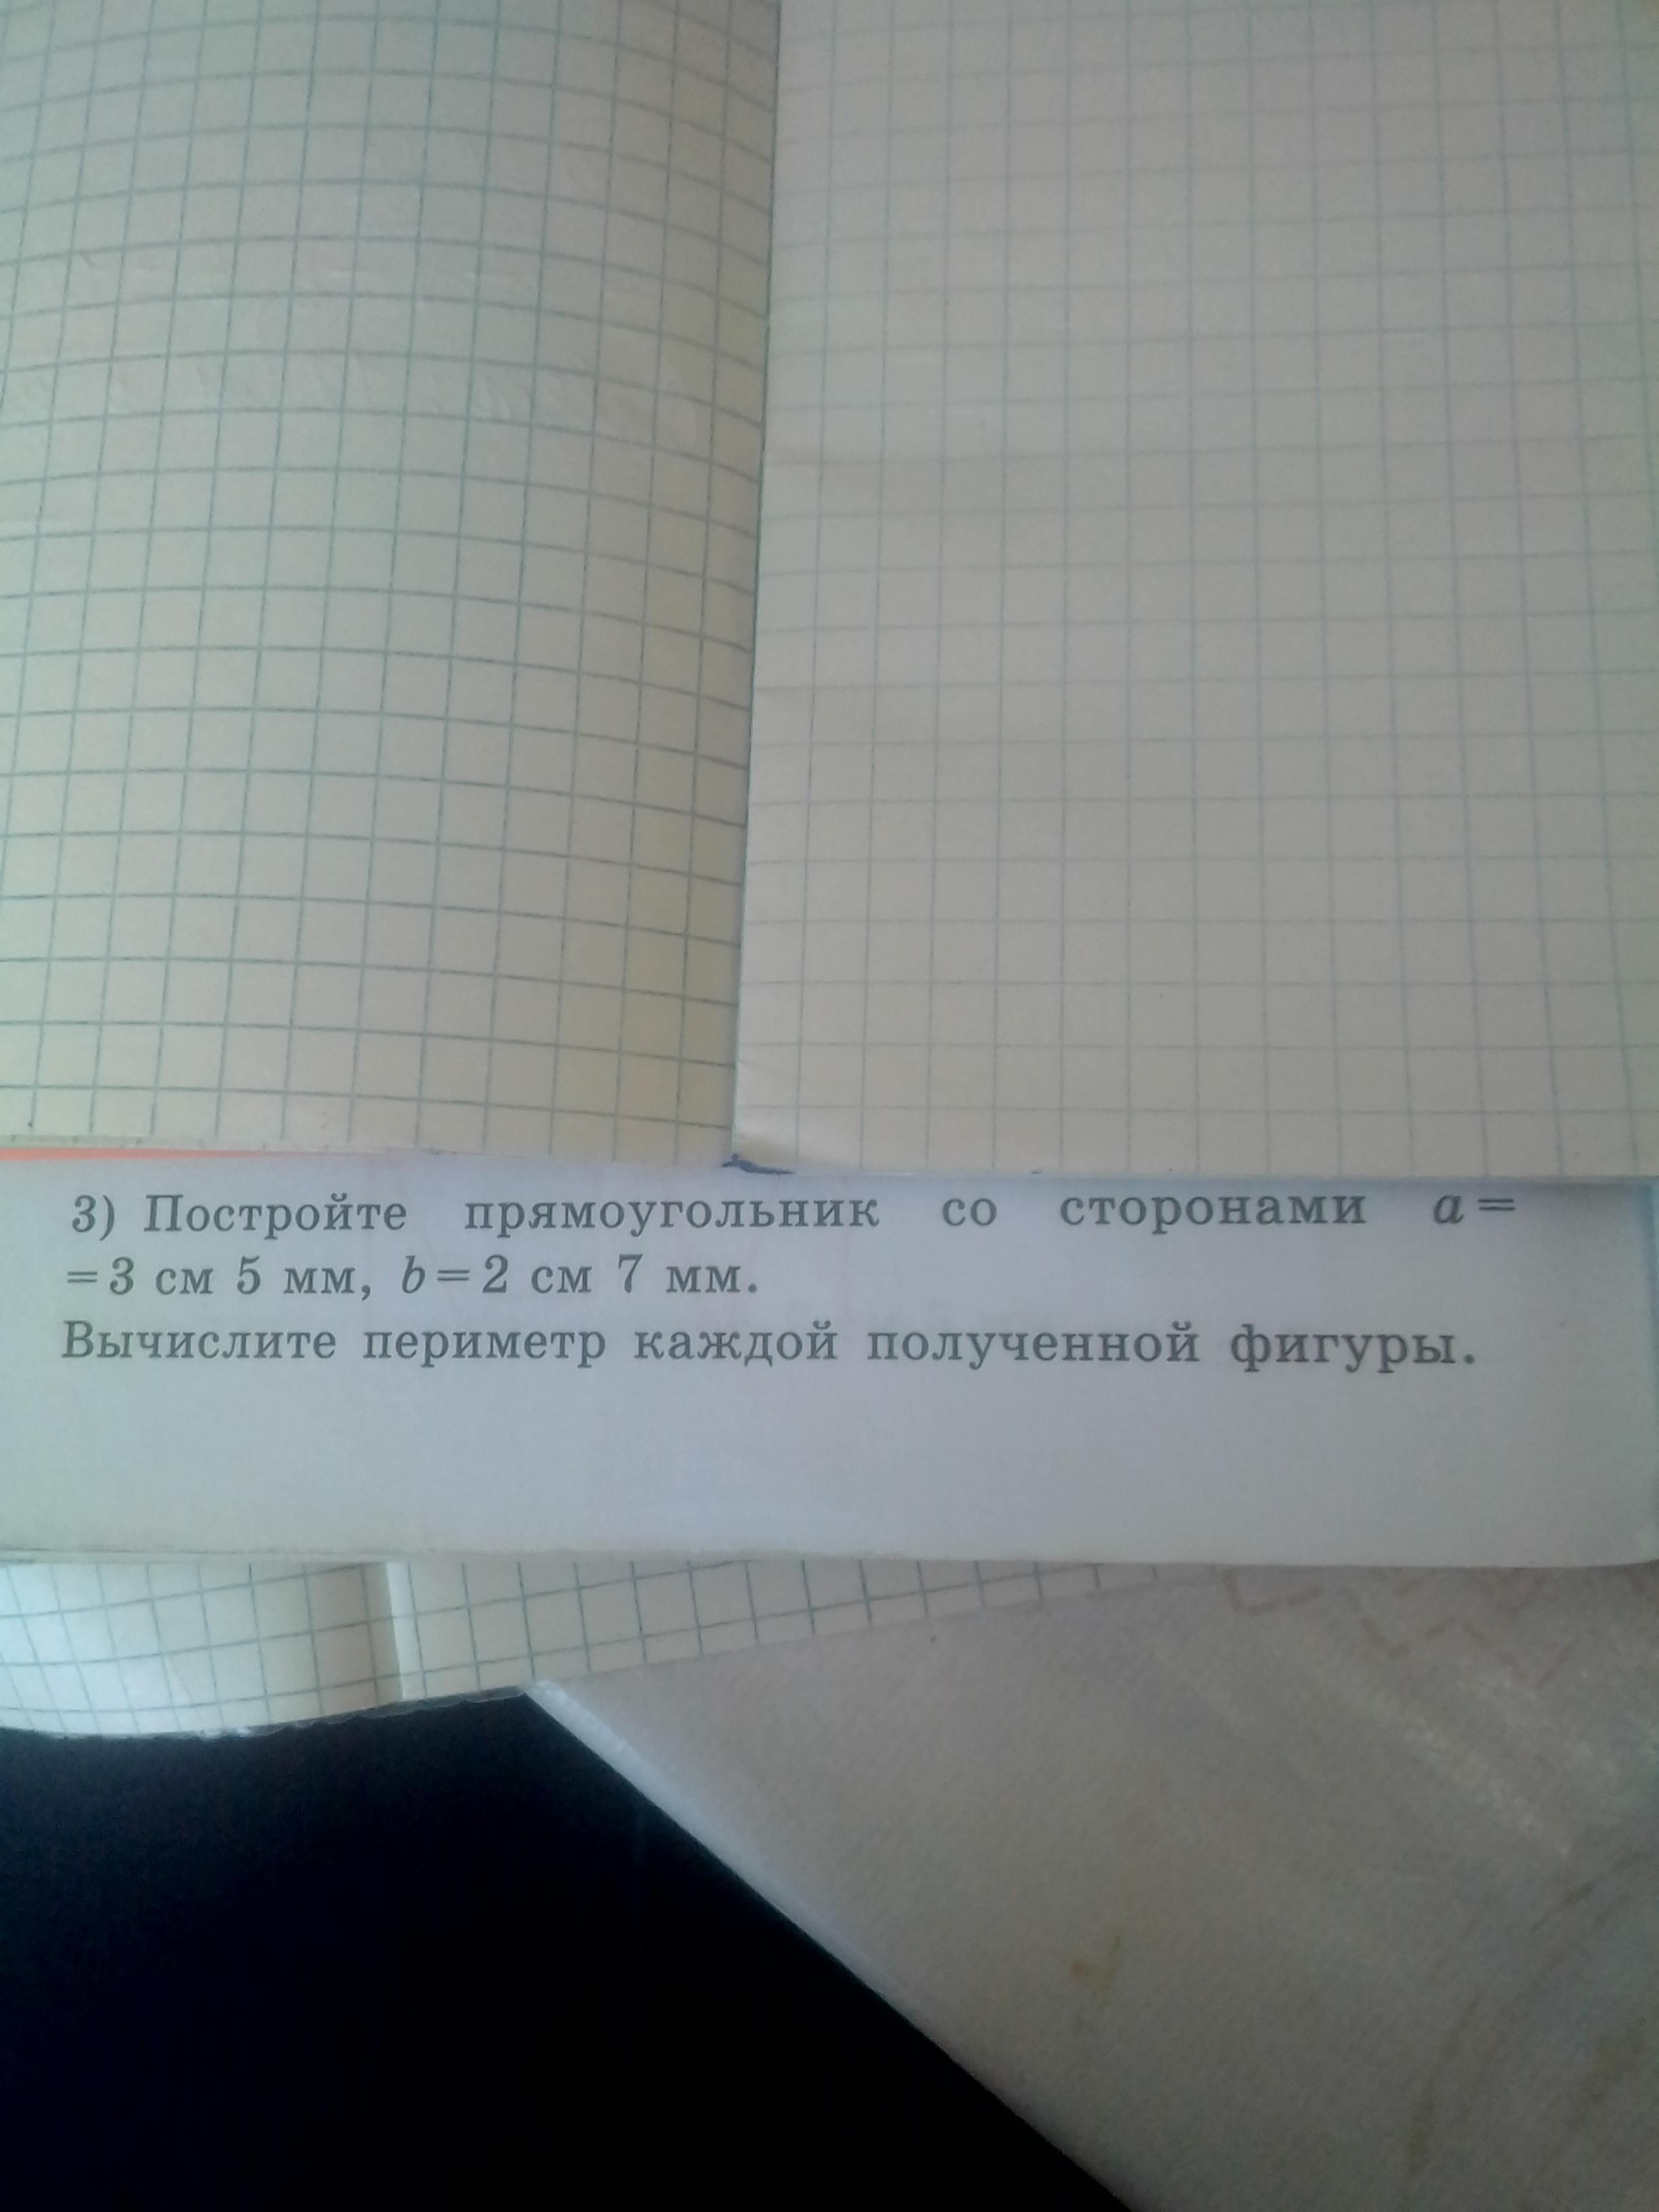 3) Постройте прямоугольник со сторонами a=
=3 см 5 мм, b=2 см 7 мм.
Вычислите периметр каждой полученной фигуры.